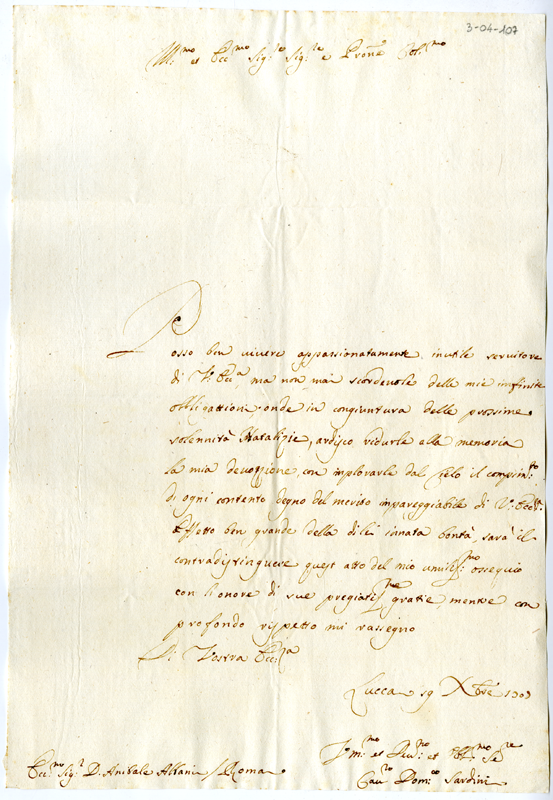 3-04-107
Ill.mo et Ecc.mo Sig.re Sig.re e Pron.e Col.mo
Posso ben vivere appassionatamente inutile servitore
di V. Ecc.a ma non mai scordevole delle mie infinite
obligattioni; onde in congiuntura delle prossime
solennità Natalizie, ardisco ridurle alla memoria
la mia devozzione, con implorarle dal Cielo il compim.to
di ogni contento degno del merito impareggiabile di V. Ecc.a
Effetto ben grande della di lei innata bontà, sarà il
contradistinguere quest'atto del mio umilis.mo ossequio
con l'onore di sue pregiatis.me gratie, mentre con
profondo rispetto mi rassegno
Di Vostra Ecc.za
Lucca 19 Xbre
et Obl.mo Se.re
Cav.re Dom.co Sardini
Ecc.mo Sig.r D. Anibale Albani / Roma